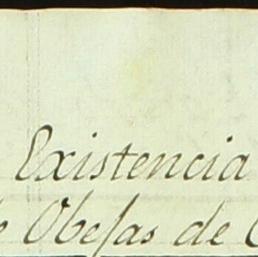 Existencia
Obejas de